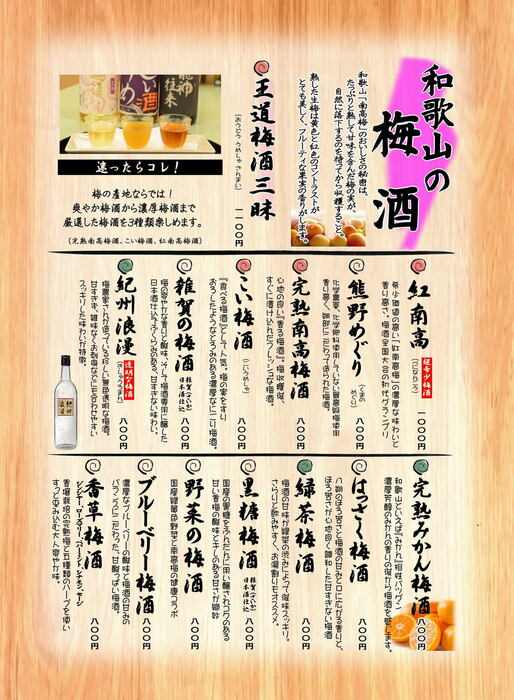 和歌山の
梅酒
和歌山「南高梅」のおいしさの秘密は、
たっぷりと熟して甘味を含んだ梅の実が、
自然に落下するのを待ってから収穫すること。
熟した生梅は黄色と紅色のコントラストが
とても美しく、フルーティな果実の香りがします。
王道梅酒三昧
(おうどううめしゅざんまい)
一一〇〇円
迷ったらコレ！
梅の産地ならでは！
爽やか梅酒から濃厚梅酒まで
厳選した梅酒を3種類楽しめます。
(完熟南高梅酒、こい梅酒、紅南高梅酒)
紅南高
(べになんこう)
超希少梅酒
一〇〇〇円
希少価値の高い「紅南高梅」の濃厚な味わいと
香り高さ。梅酒全国大会の初代グランプリ
熊野めぐり
(くまのめぐり)
八〇〇円
化学農薬、化学肥料使用していない農薬梅使用
香り高く、細部にこだわって造られた梅酒。
完熟南高梅酒
八〇〇円
心地の良い「香る梅酒」。梅収穫後、
すぐに漬け込んだフレッシュな梅酒。
こい梅酒
(こいうめしゅ)
八〇〇円
『食べる梅酒』として人気。梅の実をすり
おろしたようなとろみのある濃厚なにごり梅酒。
雑賀の梅酒
雑賀(さいか)
日本酒仕込
八〇〇円
梅の爽やかな香りと酸味、そして梅酒専用に醸した
日本酒仕込みでうまみのある、甘すぎない味わい。
紀州浪漫
透明な梅酒
(きしゅうろまん)
八〇〇円
梅農家さんが造っている珍しい無色透明な梅酒。
甘すぎず、雑味なくお刺身などにも合わせやすい
スッキリした味わいが特徴。
完熟みかん梅酒
八〇〇円
和歌山といえば『みかん』相性バツグン
濃厚芳醇のみかんの香りの後から梅酒を感じます。
はっさく梅酒
八〇〇円
八朔のほろ苦さと梅酒の甘みと口に広がる香りと、
ほろ苦さが心地良く調和した甘すぎない梅酒
緑茶梅酒
八〇〇円
梅酒の甘味が緑茶の渋みによって後味スッキリ。
さらりと飲みやすく、お湯割りもオススメ。
黒糖梅酒
雑賀(さいか)
日本酒仕込
八〇〇円
国産の黒糖をふんだんに用い醸されコクのある
甘い香梅の酸味とキレのある甘さが絶妙
野菜の梅酒
八〇〇円
国産緑黄色野菜と南高梅の健康コラボ
ブルーベリー梅酒
八〇〇円
濃厚なブルーベリーの酸味と梅酒の甘みの
バランスにこだわった、甘酸っぱい梅酒。
香草梅酒
八〇〇円
ジンジャー・ローズマリー・ペパーミント・レモングラス・セージ
香壇栽培の完熟梅と五種類のハーブを使い
すっと染み込む大人爽やか味。